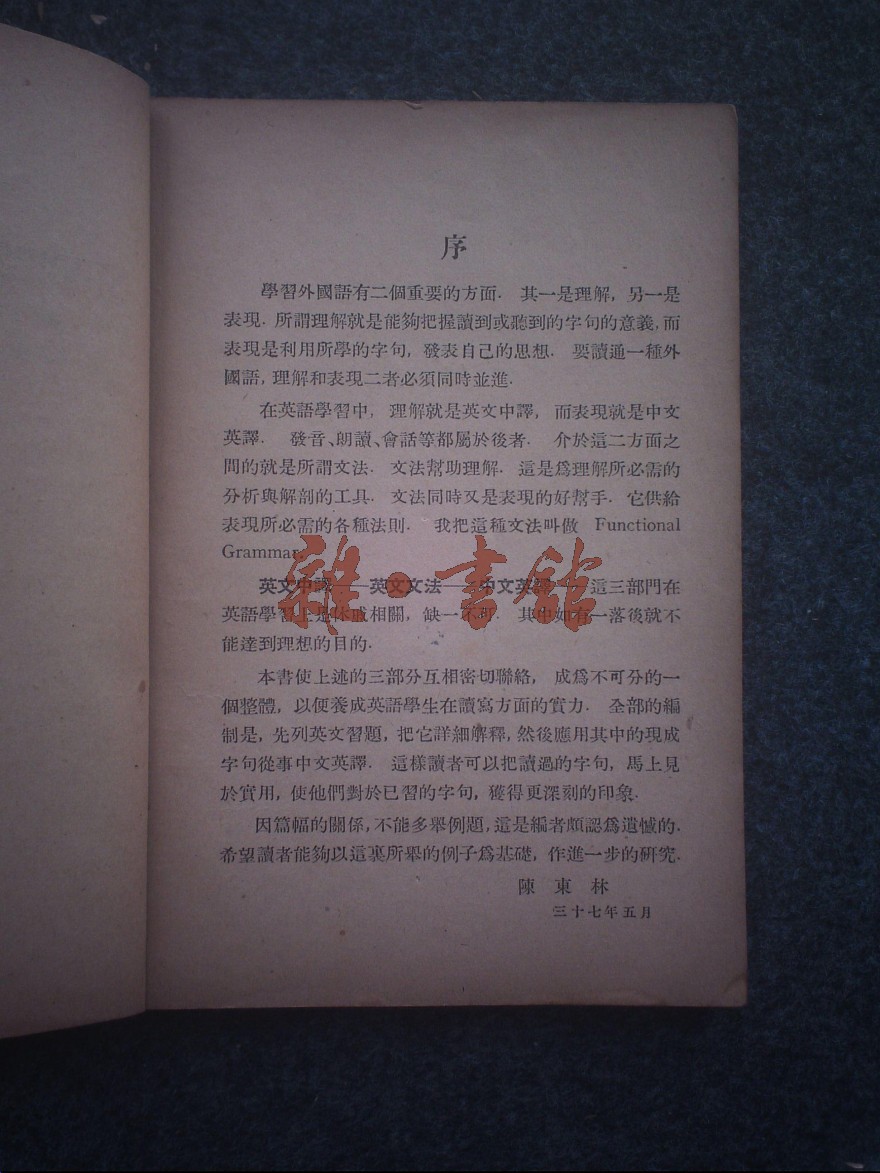 序
學習外國語有二個重要的方面. 其一是理解, 另一是
表現. 所謂理解就是能夠把握讀到或聽到的字句的意義, 而
表現是利用所學的字句, 發表自己的思想. 要讀通一種外
國語, 理解和表現二者必須同時並進.
在英語學習中, 理解就是英文中譯, 而表現就是中文
英譯. 發音、朗讀、會話等都屬於後者. 介於這二方面之
間的就是所謂文法. 文法幫助理解. 這是爲理解所必需的
分析與解剖的工具. 文法同時又是表現的好幫手. 它供給
表現所必需的各種法則. 我把這種文法叫做 Functional
Grammar.
英文中譯——英文文法——中文英譯——這三部門在
英語學習上是休戚相關, 缺一不可. 其中如有一落後就不
能達到理想的目的.
本書使上述的三部分互相密切聯絡, 成爲不可分的一
個整體, 以便養成英語學生在讀寫方面的實力. 全部的編
制是, 先列英文習題, 把它詳細解釋, 然後應用其中的現成
字句從事中文英譯. 這樣讀者可以把讀過的字句, 馬上見
於實用, 使他們對於已習的字句, 獲得更深刻的印象.
因篇幅的關係, 不能多舉例題, 這是編者頗認爲遺憾的.
希望讀者能夠以這裏所舉的例子爲基礎, 作進一步的研究.
陳東林
三十七年五月
雜·書館